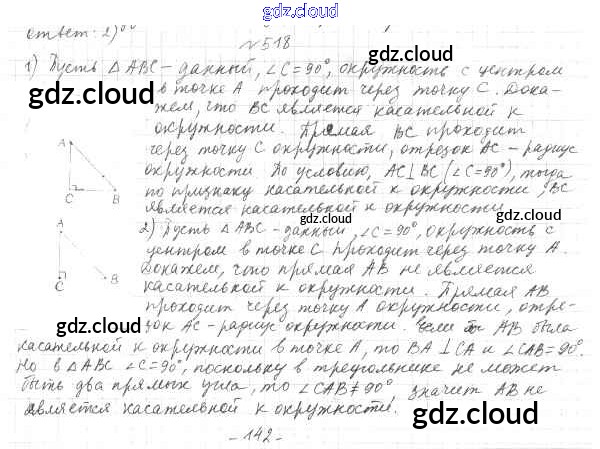 gdz.cloud
ответ: 2)
№518
gdz.cloud
1) Пусть △ABC - данный, ∠C=90°, окружность с центром
в точке A проходит через точку C. Дока-
gdz.cloud
жем, что BC является касательной к
окружности. Прямая BC проходит
gdz.cloud
через точку C окружности, отрезок AC - радиус
окружности. По условию, AC⊥BC (∠C=90°), тогда
по признаку касательной к окружности, BC
является касательной к окружности.
gdz.cloud
A
C
B
2) Пусть △ABC - данный, ∠C=90°, окружность с
центром в точке C проходит через точку A.
gdz.cloud
Докажем, что прямая AB не является
касательной к окружности. Прямая AB
проходит через точку A окружности, отре-
gdz.cloud
зок AC - радиус окружности. Если бы AB была
A
C
B
касательной к окружности в точке A, то BA⊥CA и ∠CAB=90°.
Но в △ABC ∠C=90°, поскольку в треугольнике не может
быть два прямых угла, то ∠CAB≠90° значит AB не
gdz.cloud
является касательной к окружности.
- 142 -